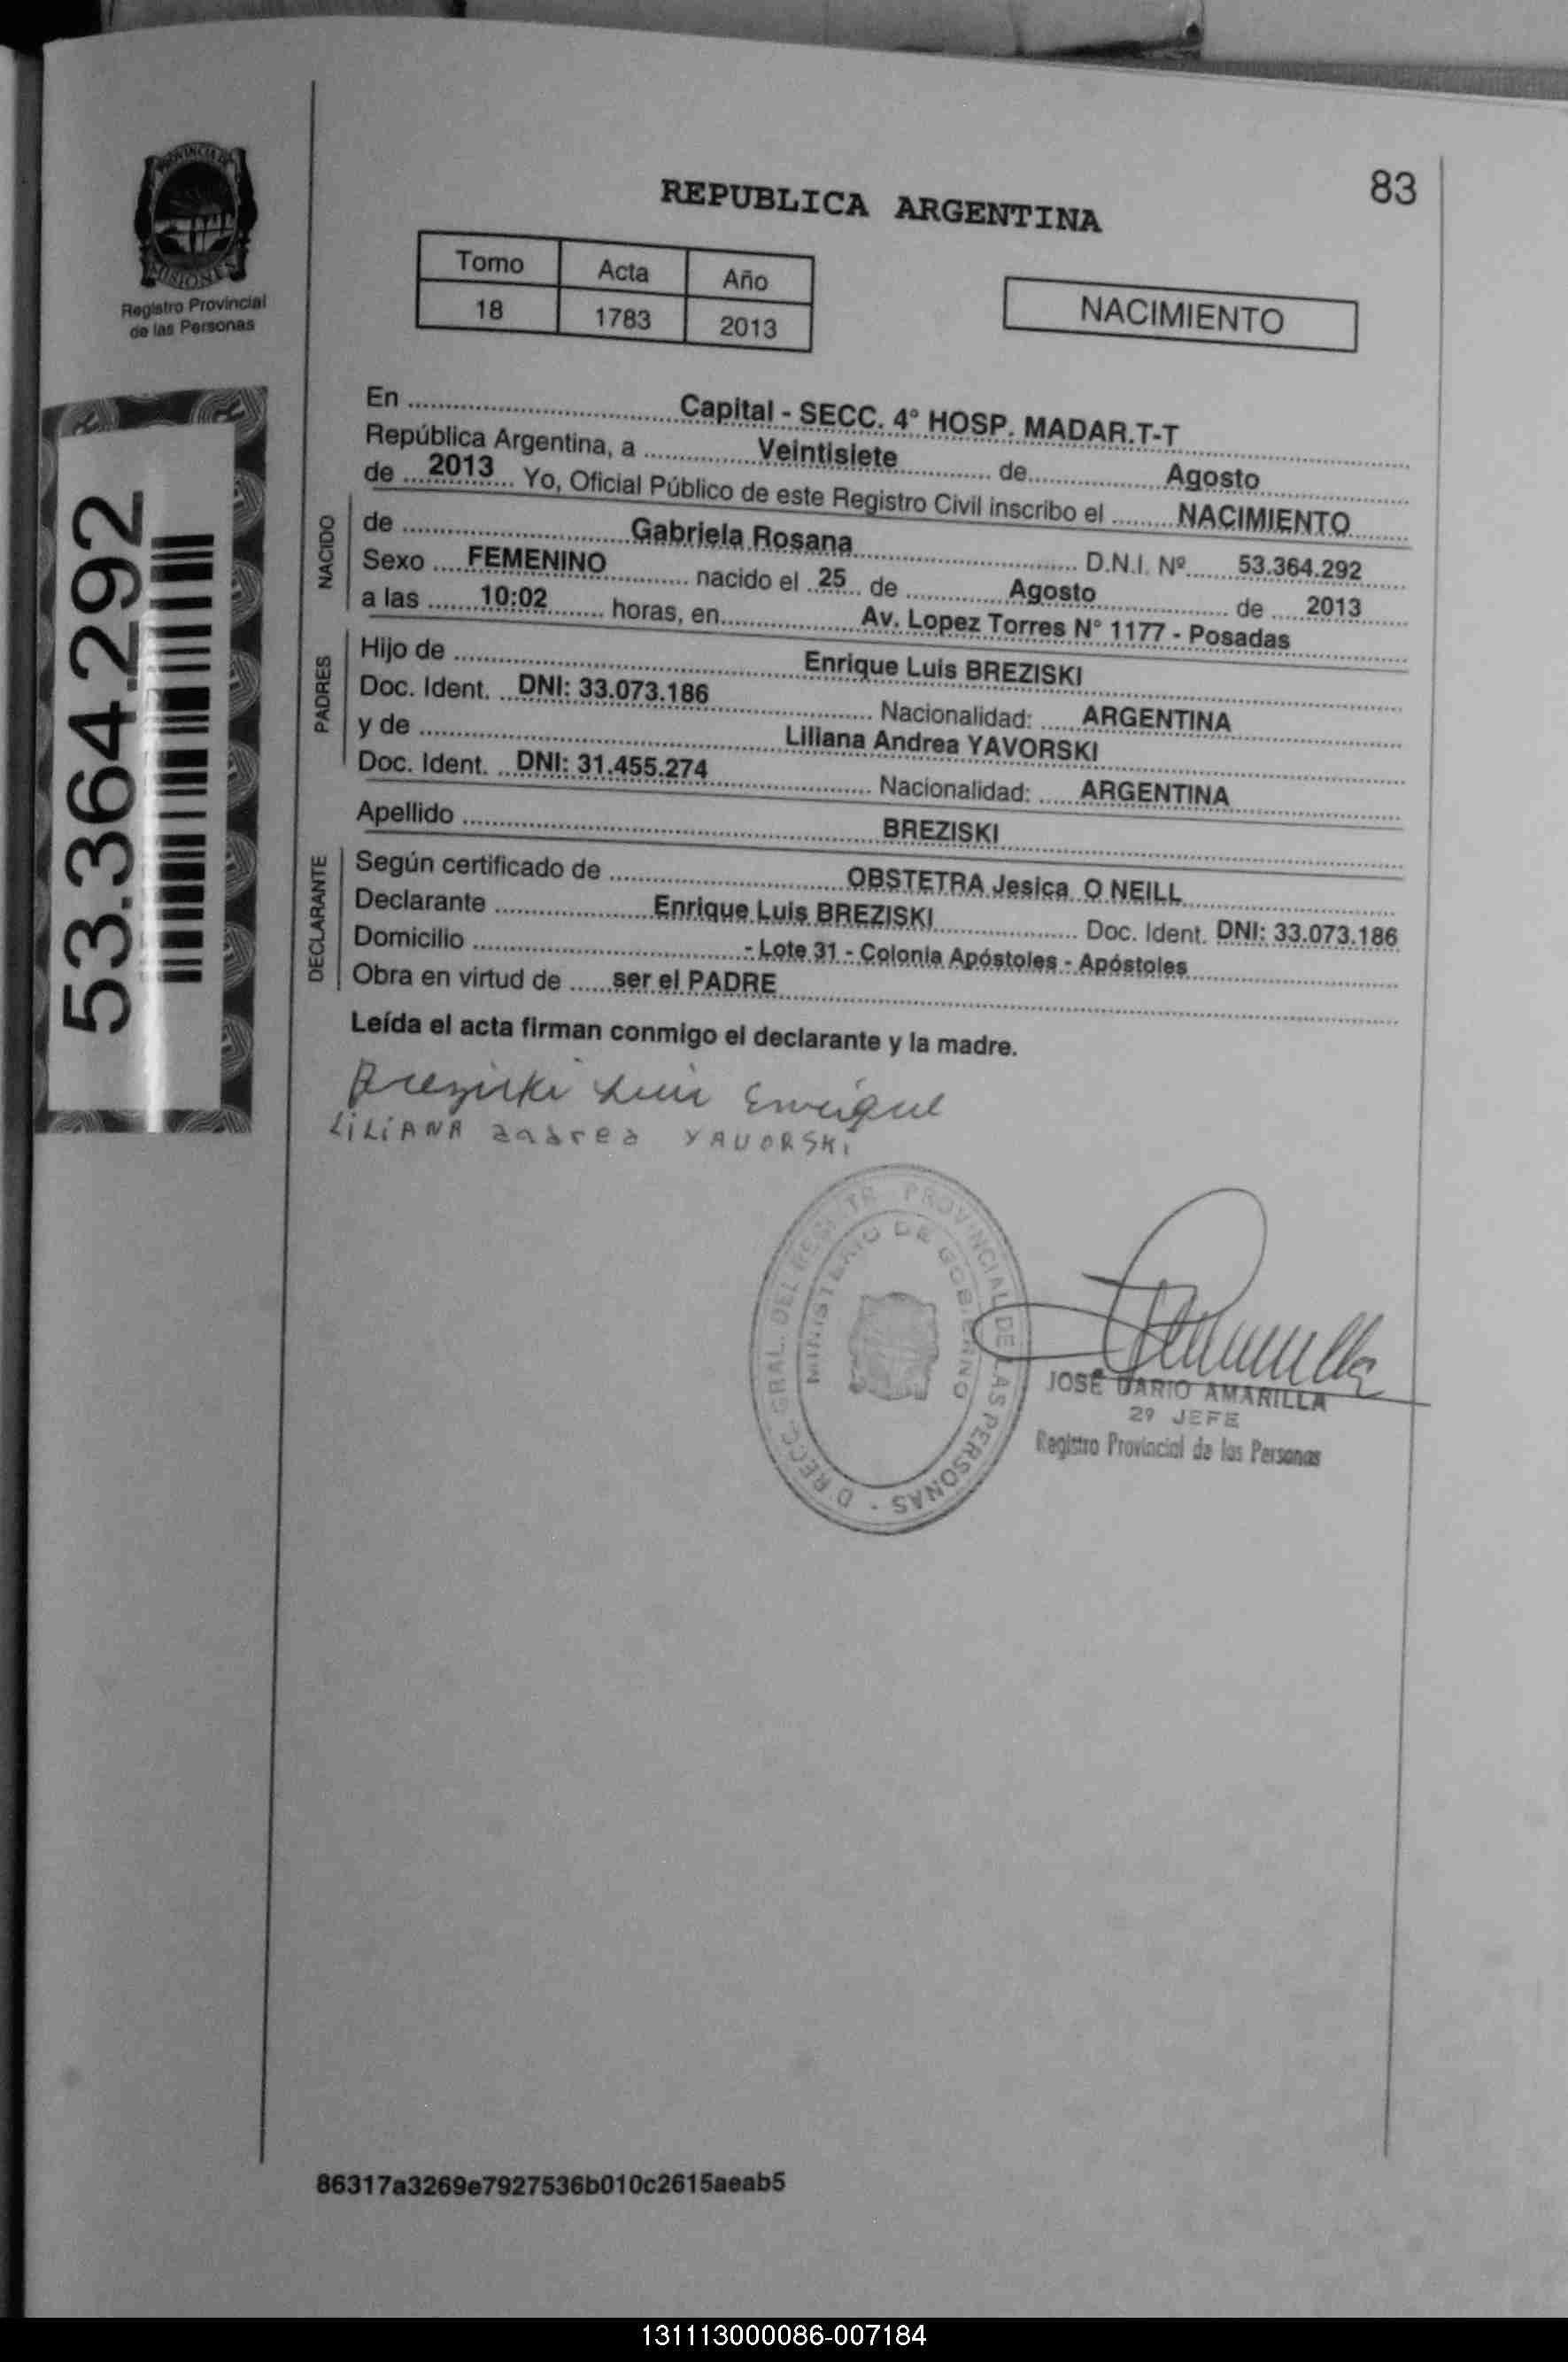 83
REPUBLICA ARGENTINA
PROVINCIA DE
MISIONES
Registro Provincial
de las Personas
Tomo Acta Año
18 1783 2013
NACIMIENTO
53.364.292
En Capital - SECC. 4° HOSP. MADAR.T-T
República Argentina, a Veintisiete de Agosto
de 2013 Yo, Oficial Público de este Registro Civil inscribo el NACIMIENTO
NACIDO
de Gabriela Rosana D.N.I. Nº 53.364.292
Sexo FEMENINO nacido el 25 de Agosto de 2013
a las 10:02 horas, en Av. Lopez Torres N° 1177 - Posadas
PADRES
Hijo de Enrique Luis BREZISKI
Doc. Ident. DNI: 33.073.186 Nacionalidad: ARGENTINA
y de Liliana Andrea YAVORSKI
Doc. Ident. DNI: 31.455.274 Nacionalidad: ARGENTINA
Apellido BREZISKI
DECLARANTE
Según certificado de OBSTETRA Jesica O NEILL
Declarante Enrique Luis BREZISKI Doc. Ident. DNI: 33.073.186
Domicilio - Lote 31 - Colonia Apóstoles - Apóstoles
Obra en virtud de ser el PADRE
Leída el acta firman conmigo el declarante y la madre.
Breziski Luis Enrique
LiLiANA andrea YAVORSKi
PROVINCIAL DE LAS PERSONAS
MINISTERIO DE GOBIERNO
JOSE DARIO AMARILLA
2º JEFE
Registro Provincial de las Personas
86317a3269e7927536b010c2615aeab5
131113000086-007184